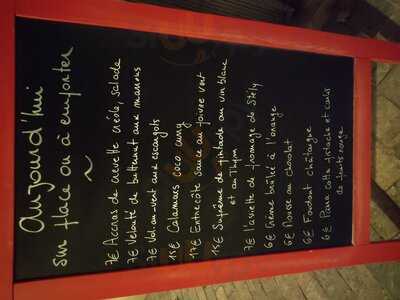 Aujourd'hui
sur place ou à emporter
~
7€ Accras de crevette créole, salade
7€ Velouté de butternut aux marrons
7€ Vol au vent aux escargots
15€ Calamars coco curry
17€ Entrecôte sauce au poivre vert
15€ Suprême de pintade au vin blanc
et au Thym
7€ L'assiette de fromage de Stély
6€ Crème brûlée à l'orange
6€ Mousse au chocolat
6€ Fondant châtaigne
6€ Panna cotta pistache et coulis
de fruits rouge